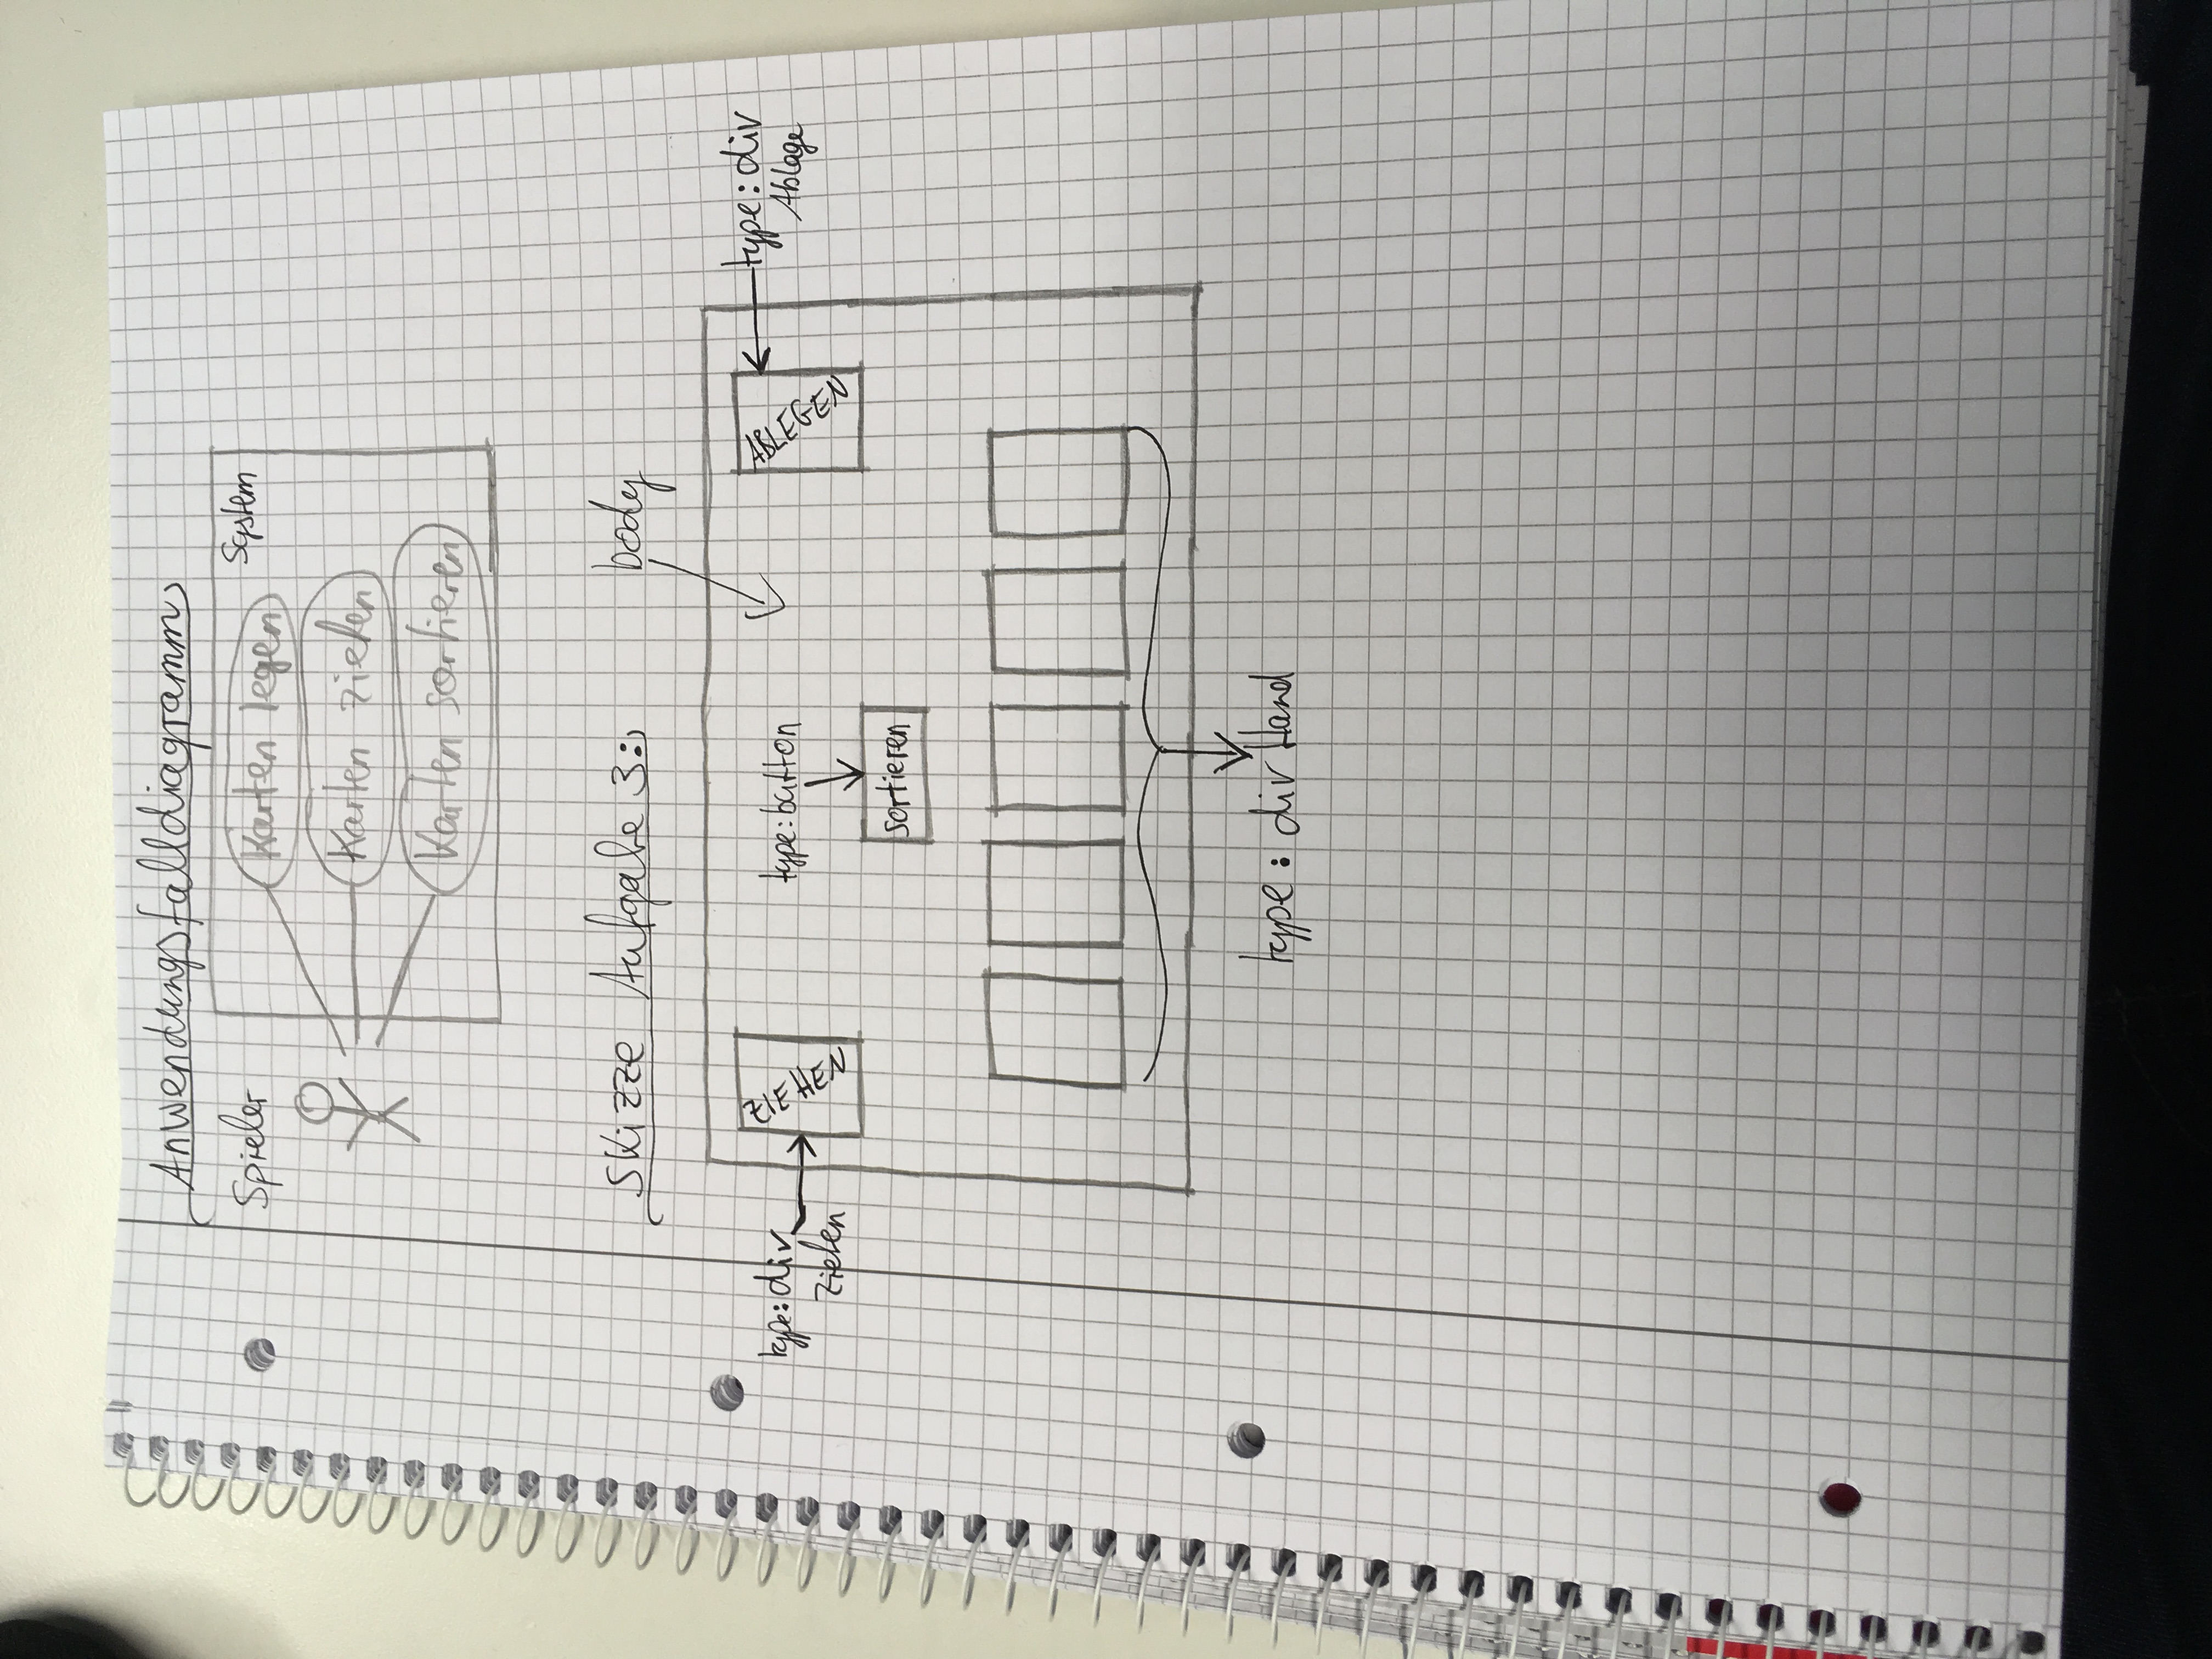 Anwendungsfalldiagramm
Spieler
System
Karten legen
Karten ziehen
Karten sortieren
Skizze Aufgabe 3:
body
type: div
ziehen
ZIEHEN
type: button
sortieren
ABLEGEN
type: div
Ablage
type: div Hand